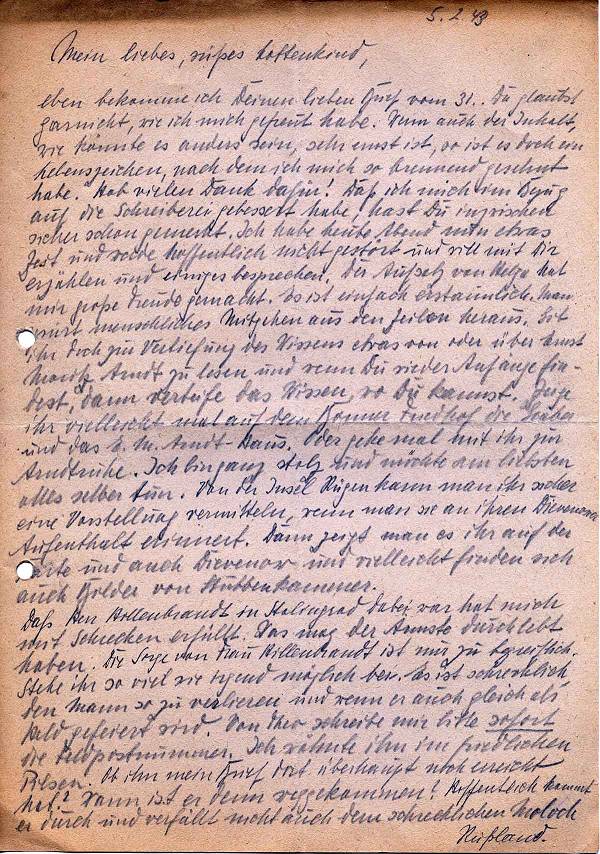 5.2.43
Mein liebes, süßes Lottenkind,
eben bekomme ich Deinen lieben Brief vom 31.. Du glaubst
garnicht, wie ich mich gefreut habe. Wenn auch der Inhalt,
wie könnte es anders sein, sehr ernst ist, so ist es doch ein
Lebenszeichen, nach dem ich mich so brennend gesehnt
habe. Hab vielen Dank dafür! Daß ich mich im Bezug
auf die Schreiberei gebessert habe, hast Du inzwischen
sicher schon gemerkt. Ich habe heute Abend nun etwas
Zeit und werde hoffentlich nicht gestört und will mit Dir
erzählen und einiges besprechen. Der Aufsatz von Helga hat
mir große Freude gemacht. Es ist einfach erstaunlich. Man
spürt menschliches Mitgehen aus den Zeilen heraus. Gib
ihr doch zur Vertiefung des Wissens etwas von oder über Ernst
Moritz Arndt zu lesen und wenn Du wieder Anfänge fin-
dest, dann vertiefe das Wissen, wo Du kannst. Zeige
ihr vielleicht mal auf dem Bonner Friedhof die Gräber
und das E. M. Arndt-Haus. Oder gehe mal mit ihr zur
Arndtruhe. Ich bin ganz stolz und möchte am liebsten
alles selber tun. Von der Insel Rügen kann man ihr sicher
eine Vorstellung vermitteln, wenn man sie an ihren Dievenower
Aufenthalt erinnert. Dann zeigt man es ihr auf der
Karte und auch Dievenow und vielleicht finden sich
auch Bilder von Stubbenkammer.
Daß Ben Hollenbrandt in Stalingrad dabei war hat mich
mit Schrecken erfüllt. Was mag der Ärmste durchlebt
haben. Die Sorge von Frau Hillenbrandt ist mir zu begreiflich.
Stehe ihr so viel wie irgend möglich bei. Es ist schrecklich
den Mann so zu verlieren und wenn er auch gleich als
Held gefeiert wird. Von Theo schreibe mir bitte sofort
die Feldpostnummer. Ich wähnte ihn im friedlichen
Pilsen. Ob ihn mein Brief dort überhaupt noch erreicht
hat? Wann ist er denn weggekommen? Hoffentlich kommt
er durch und verfällt nicht auch dem schrecklichen Moloch
Rußland.